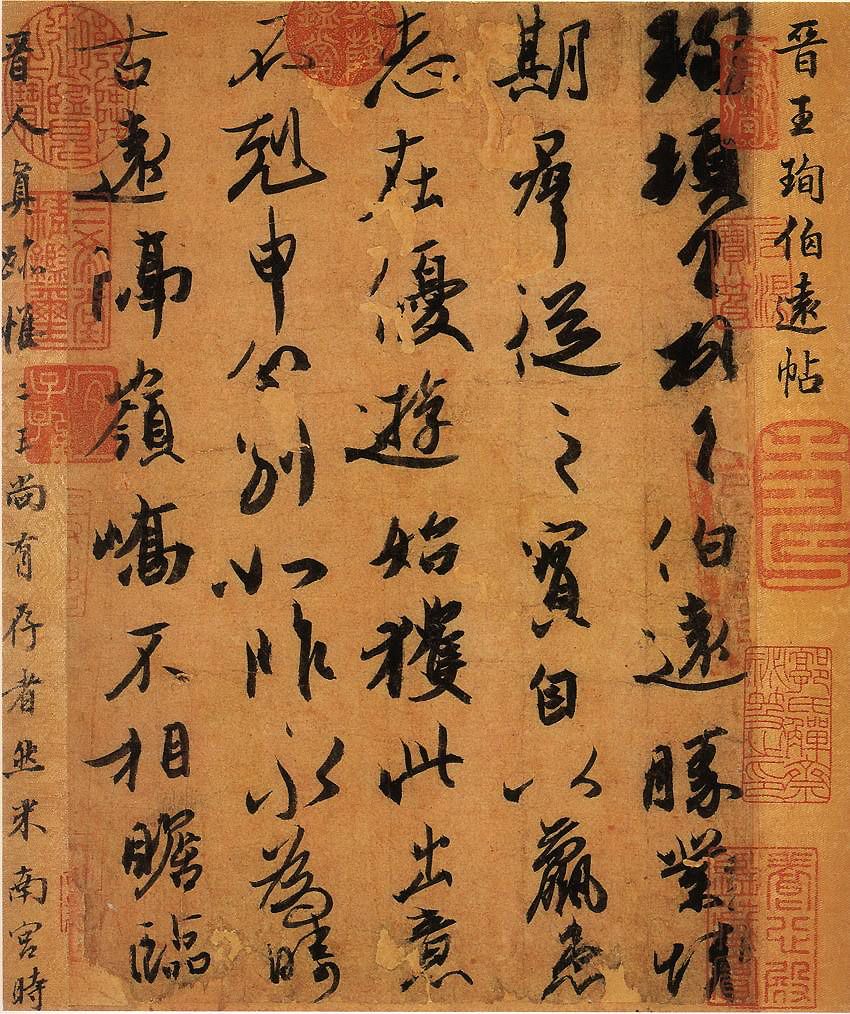 晉王珣伯遠帖
珣頓首頓首伯遠勝業情
期羣從之寶自以羸患
志在優遊始獲此出意
不剋申分別如昨永為疇
古遠隔嶺嶠不相瞻臨
晉人真蹟惟二王尚有存者然米南宮時
乾隆鑑賞
三希堂精鑑璽
宜子孫